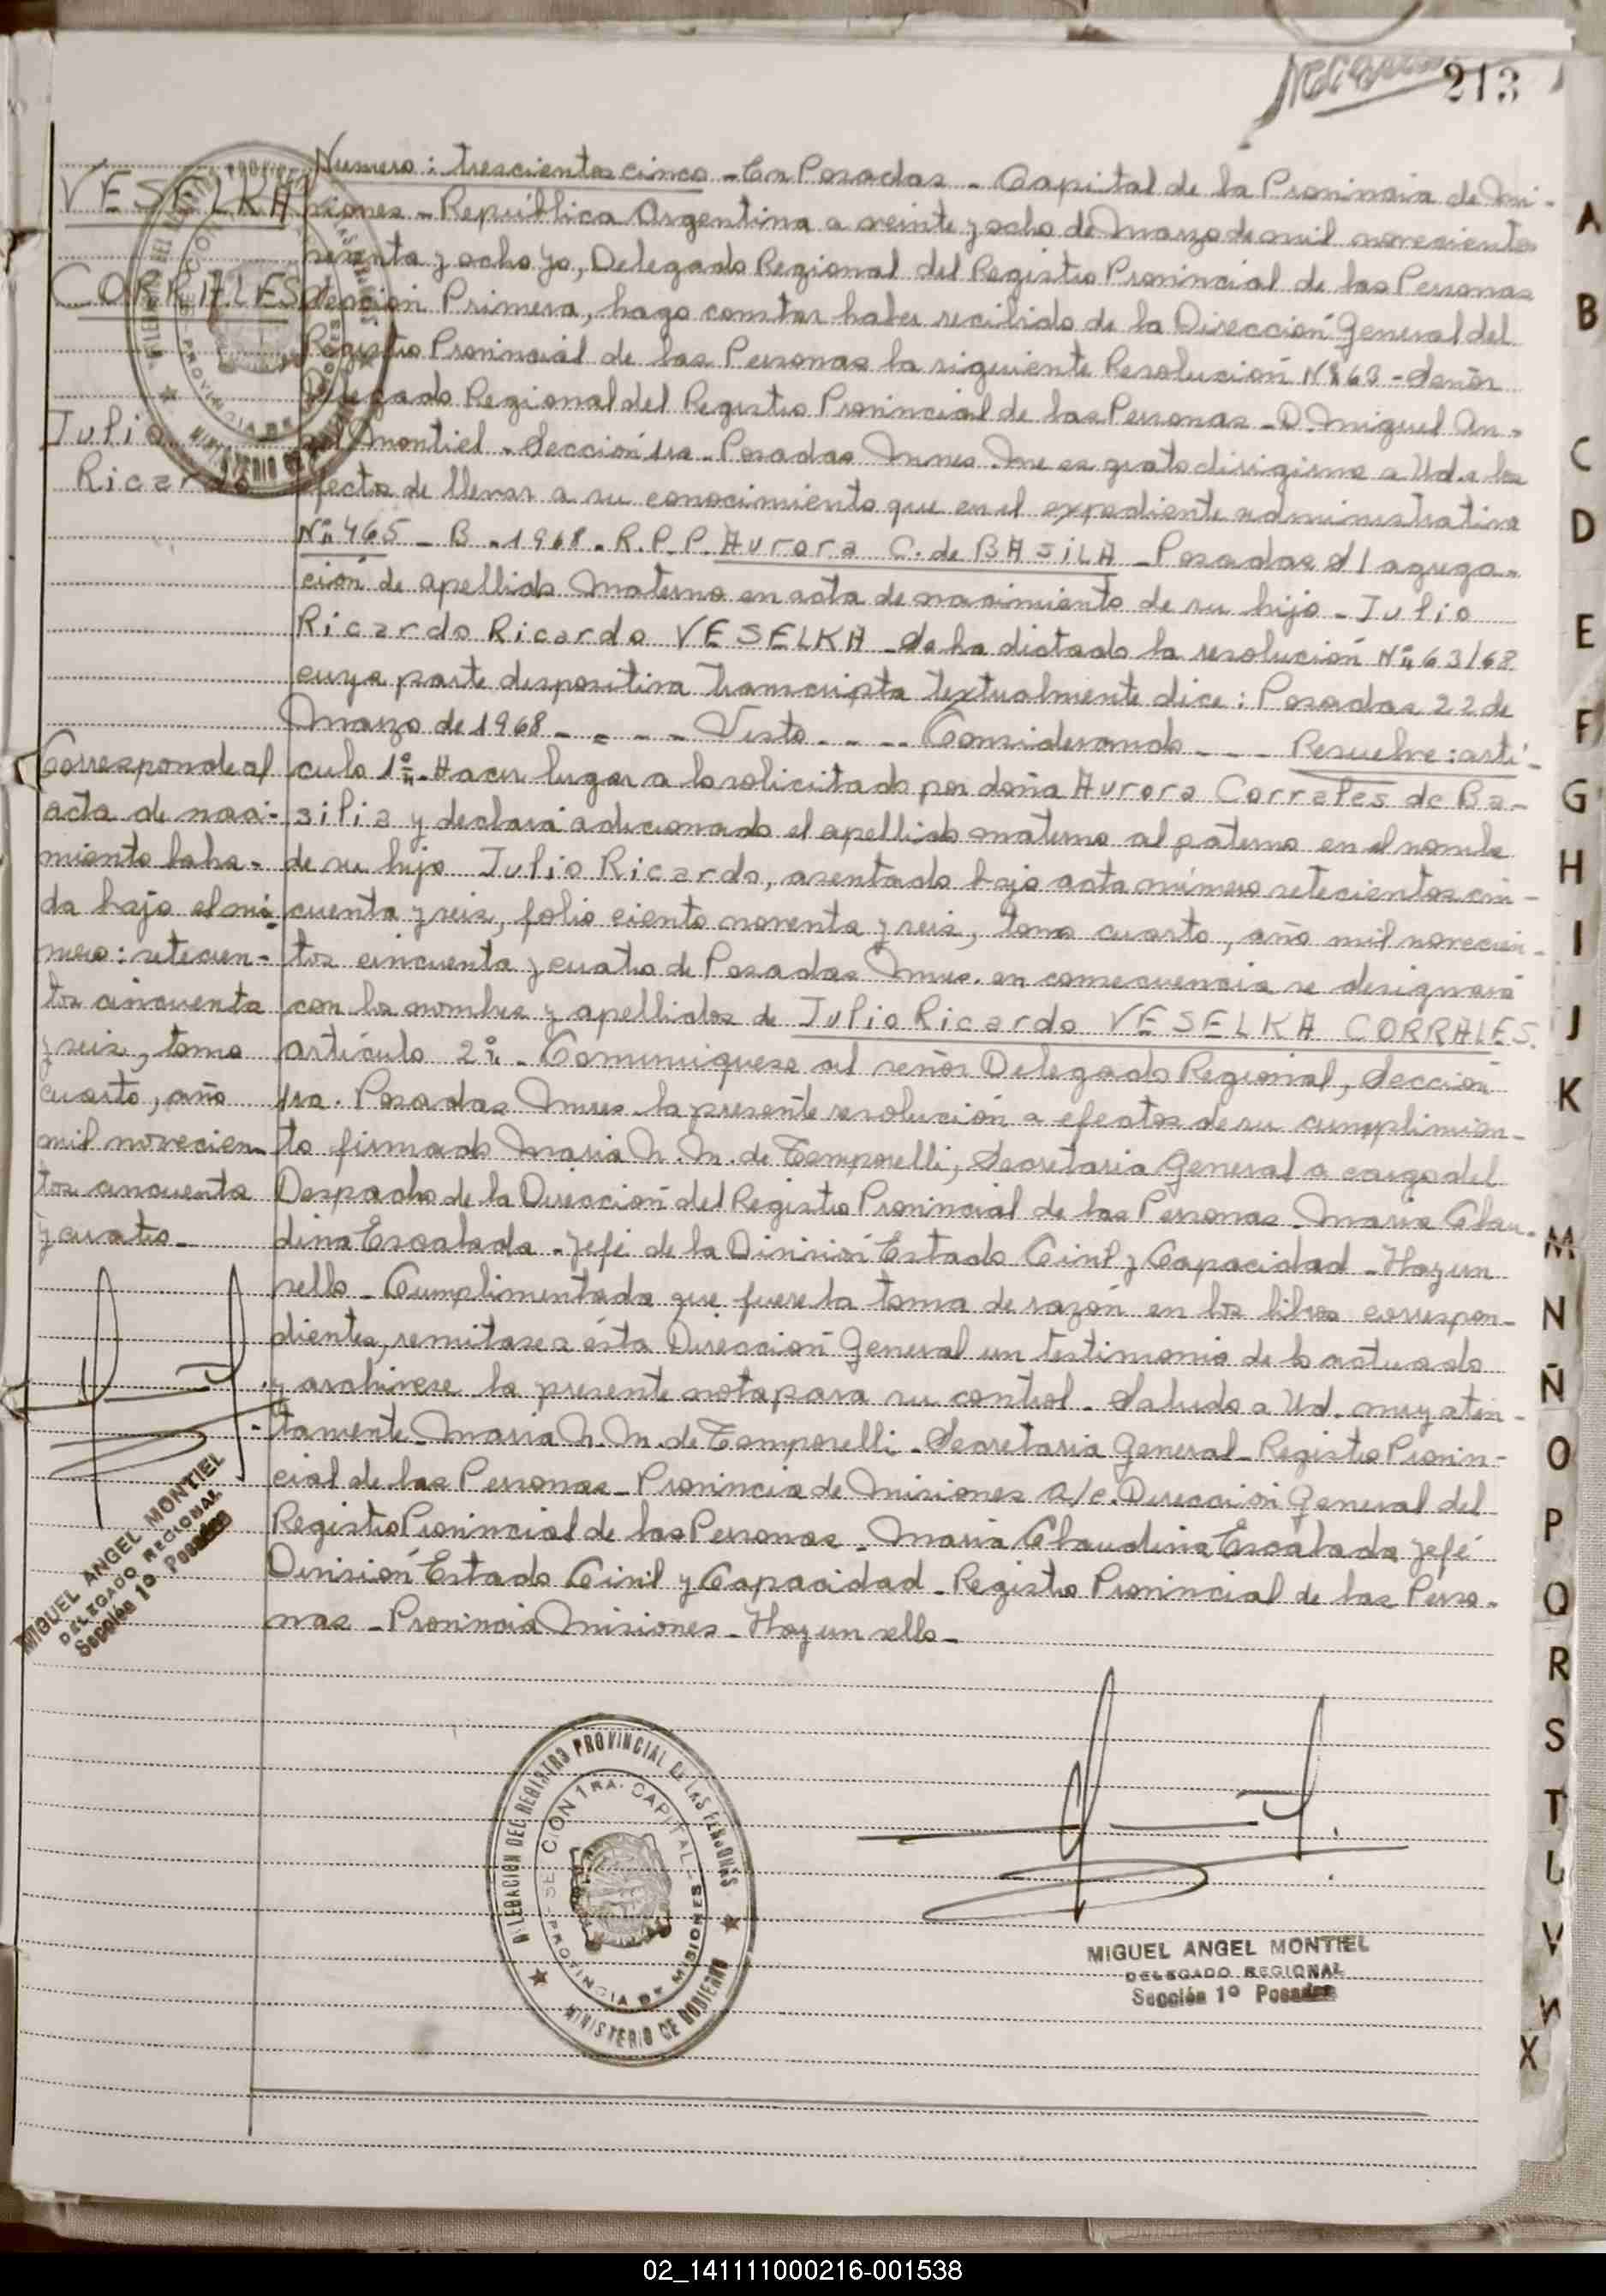 213
VESELKA
CORRALES
Julio
Ricardo
Numero: trescientos cinco - En Posadas - Capital de la Provincia de Mi-
siones - República Argentina a veinte y ocho de Marzo de mil novecientos
sesenta y ocho yo, Delegado Regional del Registro Provincial de las Personas
Sección Primera, hago constar haber recibido de la Dirección General del
Registro Provincial de las Personas la siguiente Resolución Nº 63 - Señor
Delegado Regional del Registro Provincial de las Personas - D. Miguel An-
gel Montiel - Sección 1ra - Posadas Mnes. Me es grato dirigirme a Ud. a los
efectos de llevar a su conocimiento que en el expediente administrativo
Nº 465 - B - 1968 - R.P.P. Aurora C. de BASILA - Posadas S/ agrega-
ción de apellido Materno en acta de nacimiento de su hijo - Julio
Ricardo Ricardo VESELKA - Se ha dictado la resolución Nº 63/68
cuya parte despositiva Transcripta Textualmente dice: Posadas 22 de
Marzo de 1968 - - - - Visto - - - - Considerando - - - Resuelve: artí-
culo 1º - Hacer lugar a lo solicitado por doña Aurora Corrales de Ba-
silia y declara adicionado el apellido materno al paterno en el nombre
de su hijo Julio Ricardo, asentado bajo acta número setecientos cin-
cuenta y seis, folio ciento noventa y seis, tomo cuarto, año mil novecien-
tos cincuenta y cuatro de Posadas Mnes. en consecuencia se designará
con los nombres y apellidos de Julio Ricardo VESELKA CORRALES.
artículo 2º - Comuniquese al señor Delegado Regional, Sección
1ra. Posadas Mnes la presente resolución a efectos de su cumplimien-
to firmado Maria N. M. de Temporelli, Secretaria General a cargo del
Despacho de la Dirección del Registro Provincial de las Personas - Maria Clau-
dina Escalada - Jefe de la División Estado Civil y Capacidad - Hay un
sello - Cumplimentada que fuere la toma de razón en los libros correspon-
dientes, remitase a ésta Dirección General un testimonio de lo actuado
y archivese la presente nota para su control. Saludo a Ud. muy aten-
tamente - Maria N. M. de Temporelli - Secretaria General - Registro Provin-
cial de las Personas - Provincia de Misiones a/c. Dirección General del
Registro Provincial de las Personas - Maria Claudina Escalada Jefe
División Estado Civil y Capacidad - Registro Provincial de las Perso-
nas - Provincia Misiones - Hay un sello -
Corresponde al
acta de naci-
miento labra-
da bajo el nú-
mero: setecien-
tos cincuenta
y seis, tomo
cuarto, año
mil novecien-
tos cincuenta
y cuatro -
MIGUEL ANGEL MONTIEL
DELEGADO REGIONAL
Sección 1º Posadas
DELEGACION DEL REGISTRO PROVINCIAL DE LAS PERSONAS
SECCION 1RA. CAPITAL
PROVINCIA DE MISIONES
MINISTERIO DE GOBIERNO
MIGUEL ANGEL MONTIEL
DELEGADO REGIONAL
Sección 1º Posadas
A
B
C
D
E
F
G
H
I
J
K
M
N
Ñ
O
P
Q
R
S
T
U
V
W
X
02_141111000216-001538